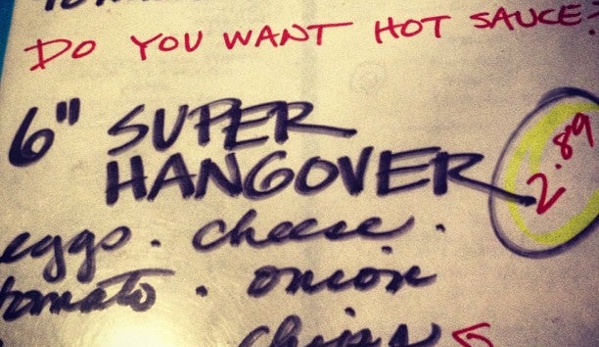 DO YOU WANT HOT SAUCE?
6" SUPER
HANGOVER 2.89
eggs. cheese.
tomato. onion
chips